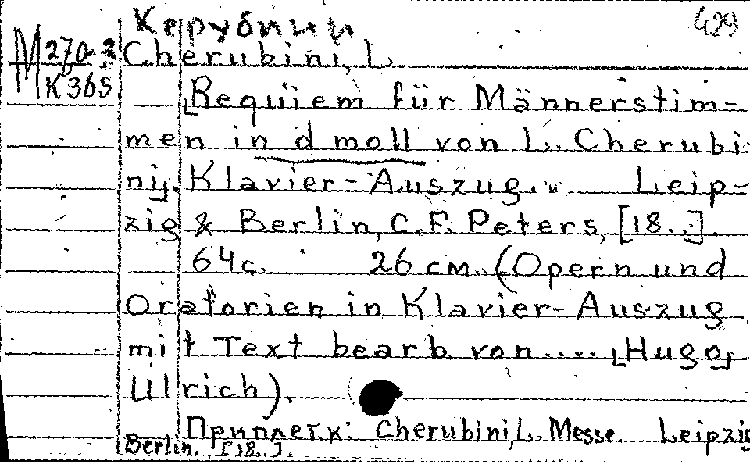 Керубини 429
М 270-3 Cherubini, L.
К 365
[Requiem für Männerstim=
men in d moll von L. Cherubi
ni]. Klavier-Auszug... Leip-
zig & Berlin, C.F. Peters, [18..].
64 с. 26 см. (Opern und
Oratorien in Klavier-Auszug
mit Text bearb von.... [Hugo]
Ulrich).
Приплетк: Cherubini, L. Messe. Leipzig
Berlin. [18..].